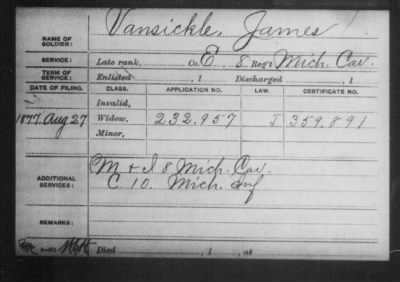 Vansickle, James
NAME OF SOLDIER:
SERVICE: Late rank, Co. E, 8 Reg't Mich. Cav.
TERM OF SERVICE: Enlisted , 1 Discharged , 1
DATE OF FILING. CLASS. APPLICATION NO. LAW. CERTIFICATE NO.
Invalid,
1877. Aug 27 Widow, 232.957 J 359.891
Minor,
ADDITIONAL SERVICES: M + I 8 Mich. Cav.
C 10. Mich. Inf
REMARKS:
Died , 1 , at